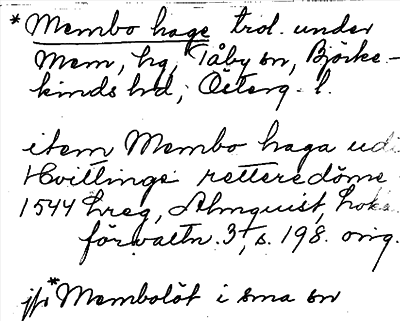 *Membo hage trol. under
Mem, hg, Tåby sn, Björke-
kinds hd, Österg. l.
item Membo haga udi
Hvittings retteredöme
1544 hreg, Almquist, Loka
förvaltn. 3, s. 198. orig.
jfr *Membolöt i sma sn